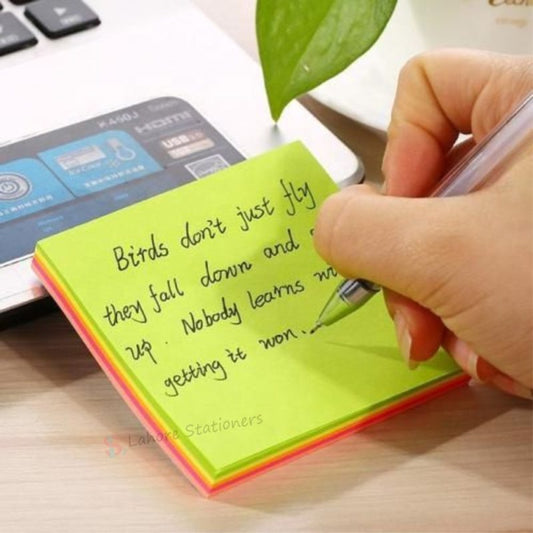 K450J
HDMI
USB 3.0
Birds don't just fly
they fall down and
up. Nobody learns
getting it won.
Lahore Stationers